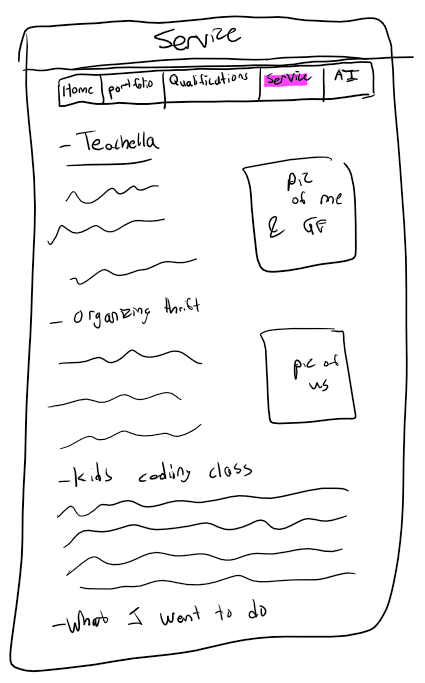 Service
Home portfolio Qualifications Service AI
- Teachella
pic
of me
& GF
- Organizing thrift
pic of
us
- Kids coding class
- What I want to do